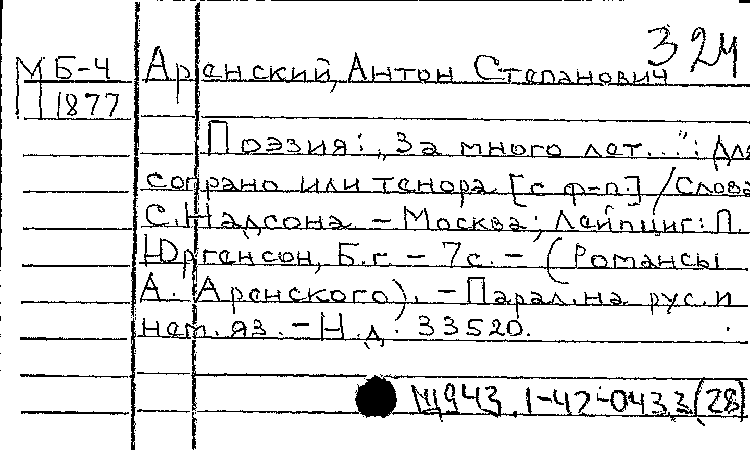 324
МБ-4 Аренский, Антон Степанович
1877
Поэзия: „За много лет...": Для
сопрано или тенора [с ф-п.] / Слова
С. Надсона. - Москва; Лейпциг: П.
Юргенсон, Б.г. - 7с. - (Романсы
А. Аренского). - Парал. на рус. и
нем. яз. - Н.д. 33520.
М943. 1-42-0433(28)